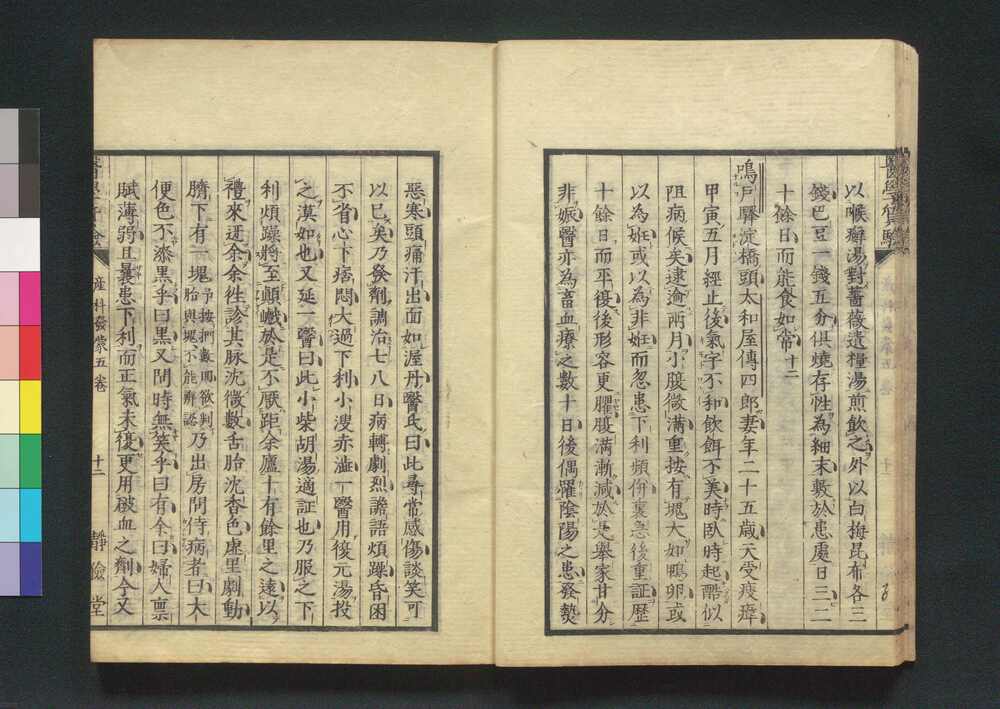 以喉癬湯對薔薇遺糧湯煎飲之外以白梅昆布各三
錢巴豆一錢五分俱燒存性為細末敷於患處日三二
十餘日而能食如常十二
鳴戸驛淀橋頭太和屋傳四郎妻年二十五歳天受痩瘁
甲寅五月經止後氣宇不和飲餌不美時臥時起酷似
阻病候矣逮逾兩月小腹微滿重按有塊大如鴨卵或
以為妊或以為非妊而忽患下利頻併裏急後重証歴
十餘日而平復後形容更臞腹滿漸減於是舉家甘分
非娠醫亦為畜血療之數十日後偶罹陰陽之患發熱
惡寒頭痛汗出面如渥丹醫氏曰此尋常感傷談笑可
以已矣乃發劑調治七八日病轉劇烈譫語煩躁昏困
不省心下痞悶大過下利小溲赤澁一醫用復元湯投
之漠如也又延一醫曰此小柴胡湯適証也乃服之下
利煩躁將至顛蹶於是不厭距余廬十有餘里之遠以
禮來迓余余徃診其脉沈微數舌胎沈香色虚里劇動
臍下有一塊予按捫數四欲判
胎與塊不能辨認乃出房問侍病者曰大
便色不漆黒乎曰黒又問時無笑乎曰有余曰婦人稟
賦薄弱且曩患下利而正氣未復更用破血之劑今又
産科發蒙五卷
十二
靜儉堂